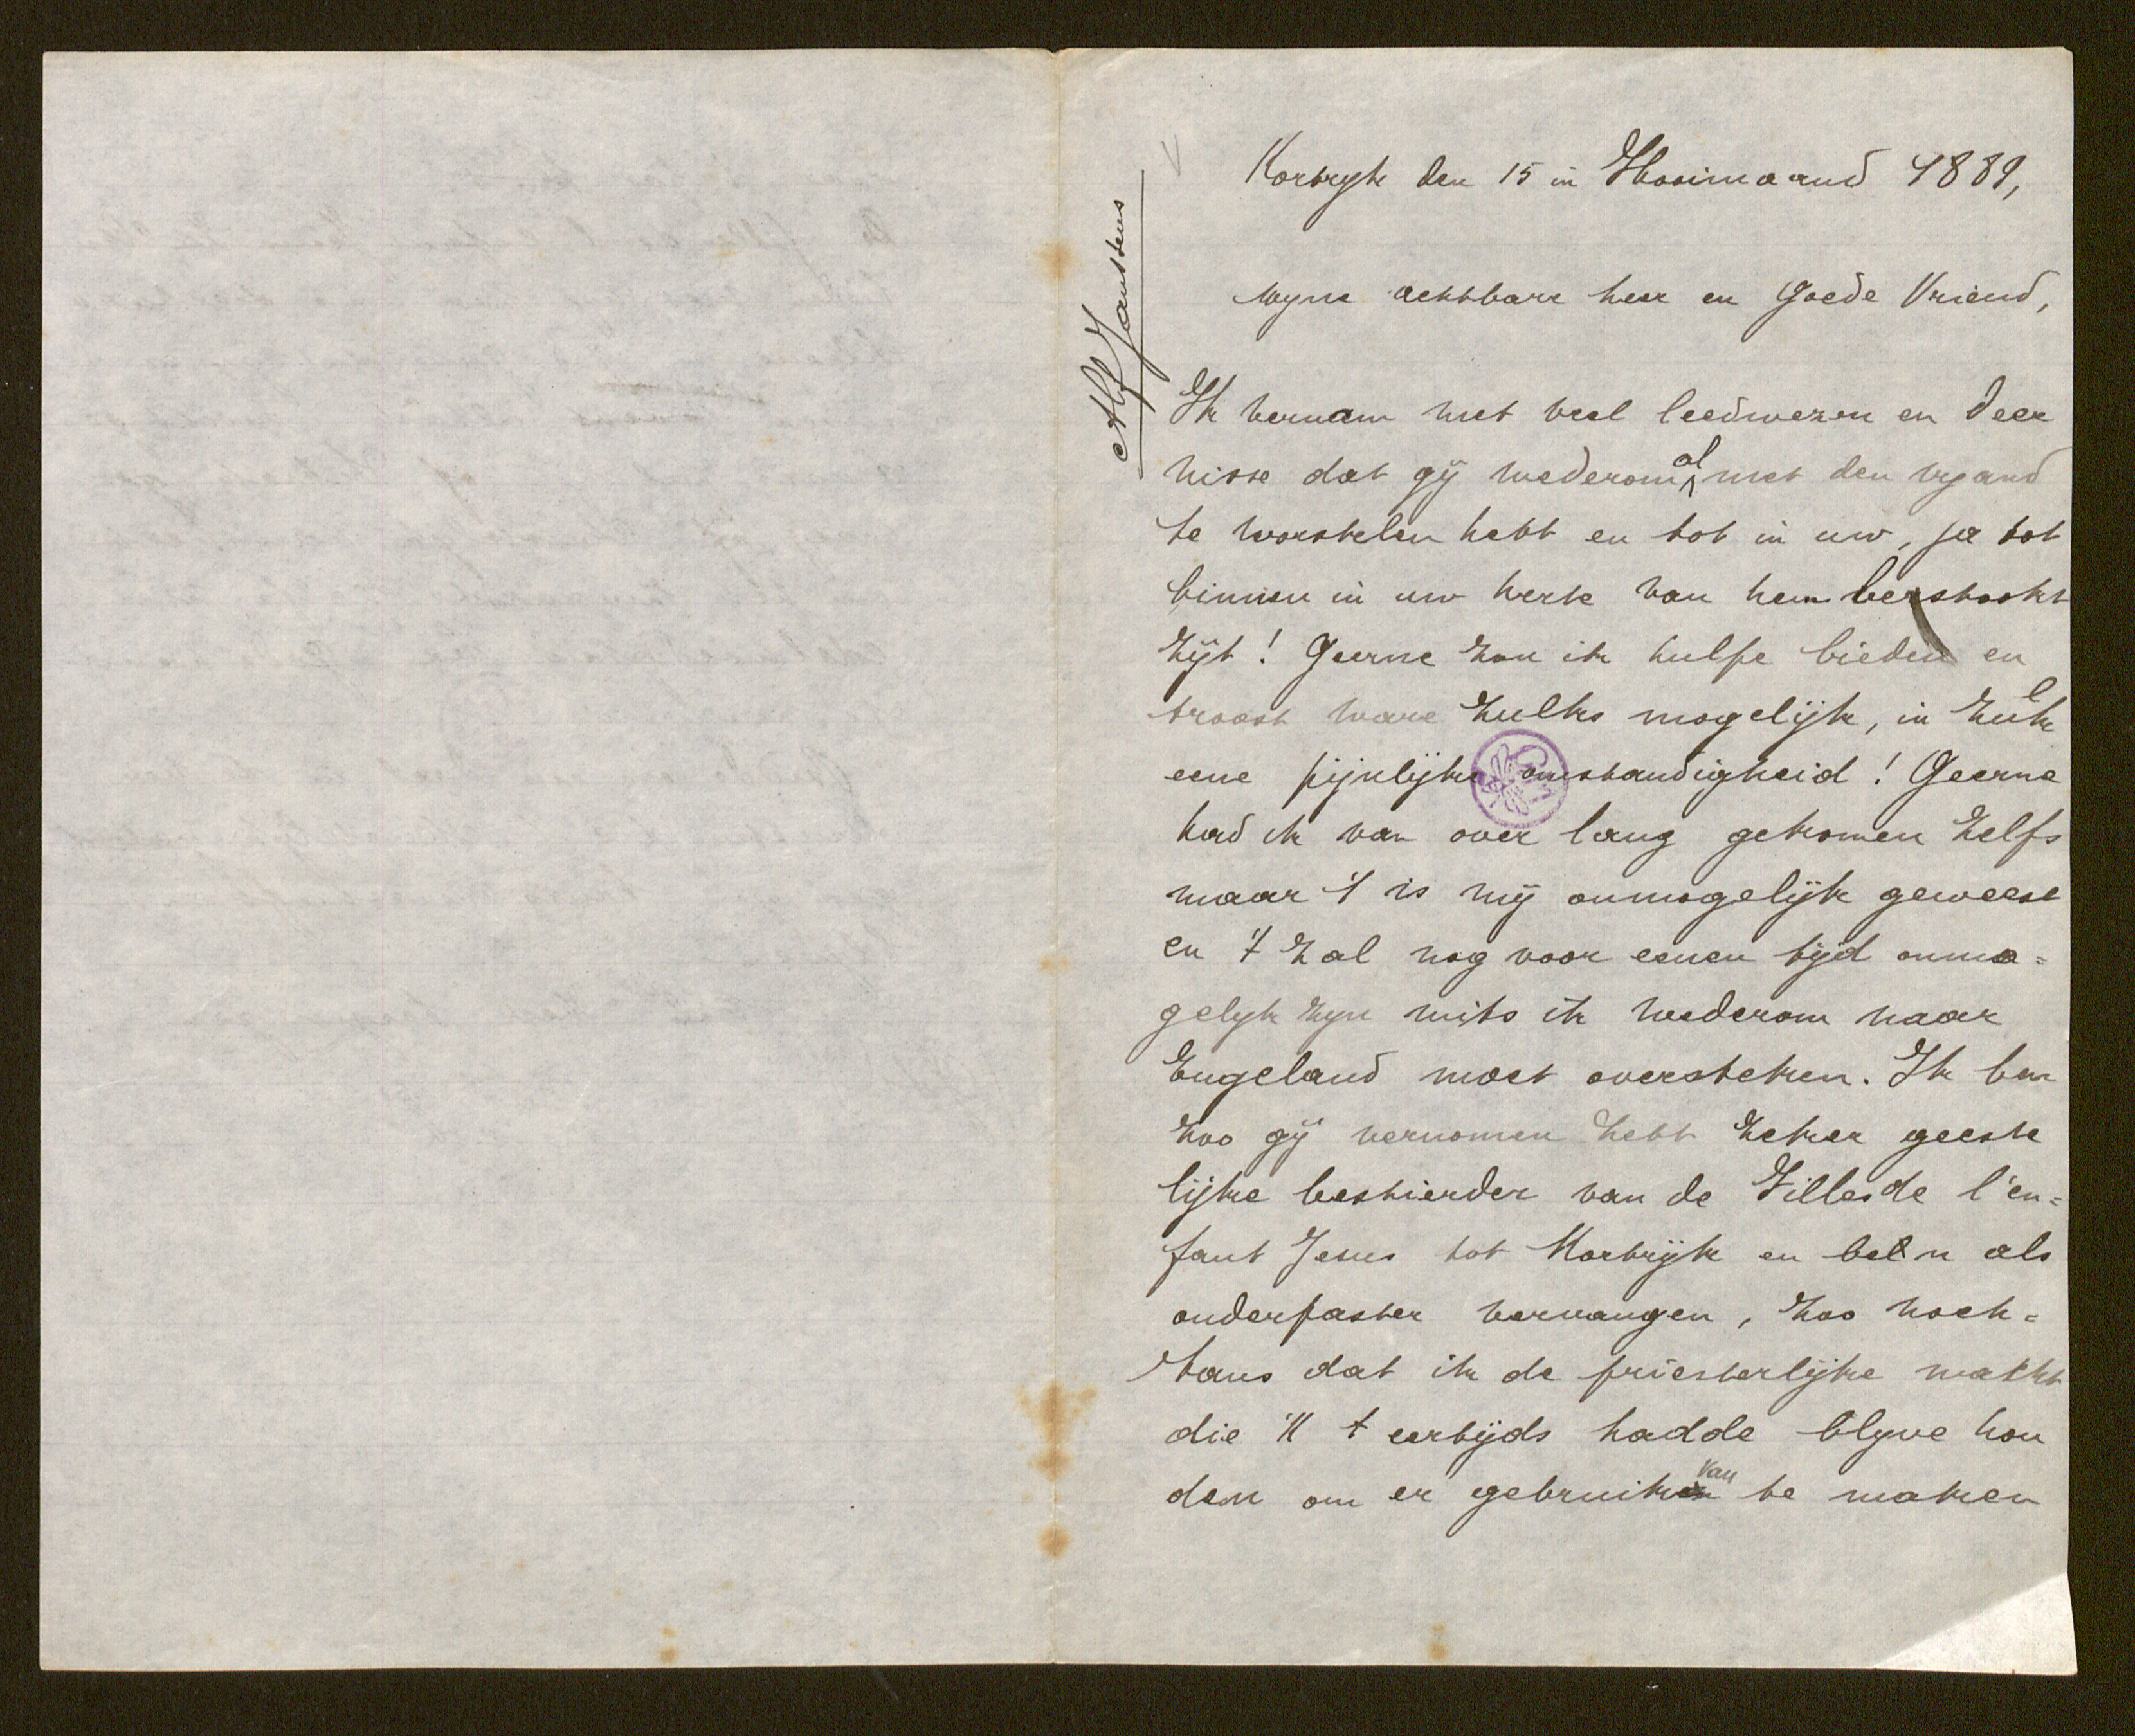 Alf Janssens
Kortryk den 15 in Hooimaand 1889,
Myne achtbare heer en Goede Vriend,
Ik vernam met veel leedwezen en deer
nisse dat gij wederom al met den vyand
te worstelen hebt en tot in uw, ja tot
binnen in uw herte van hem bestookt
zijt! Geerne zou ik hulpe bieden en
troost ware zulks mogelijk, in zulk
eene pijnlijke omstandigheid! Geerne
had ik van over lang gekomen zelfs
maar 't is mij onmogelijk geweest
en 't zal nog voor eenen tijd onmo=
gelyk zyn mits ik wederom naar
Engeland moet oversteken. Ik ben
zoo gij vernomen hebt zeker geeste
lijke bestierder van de Filles de l'en=
fant Jesus tot Kortrijk en ben als
onderpaster vervangen, zoo noch=
tans dat ik de priesterlijke macht
die 'k t eertijds hadde blyve hou
den om er gebruik van te maken